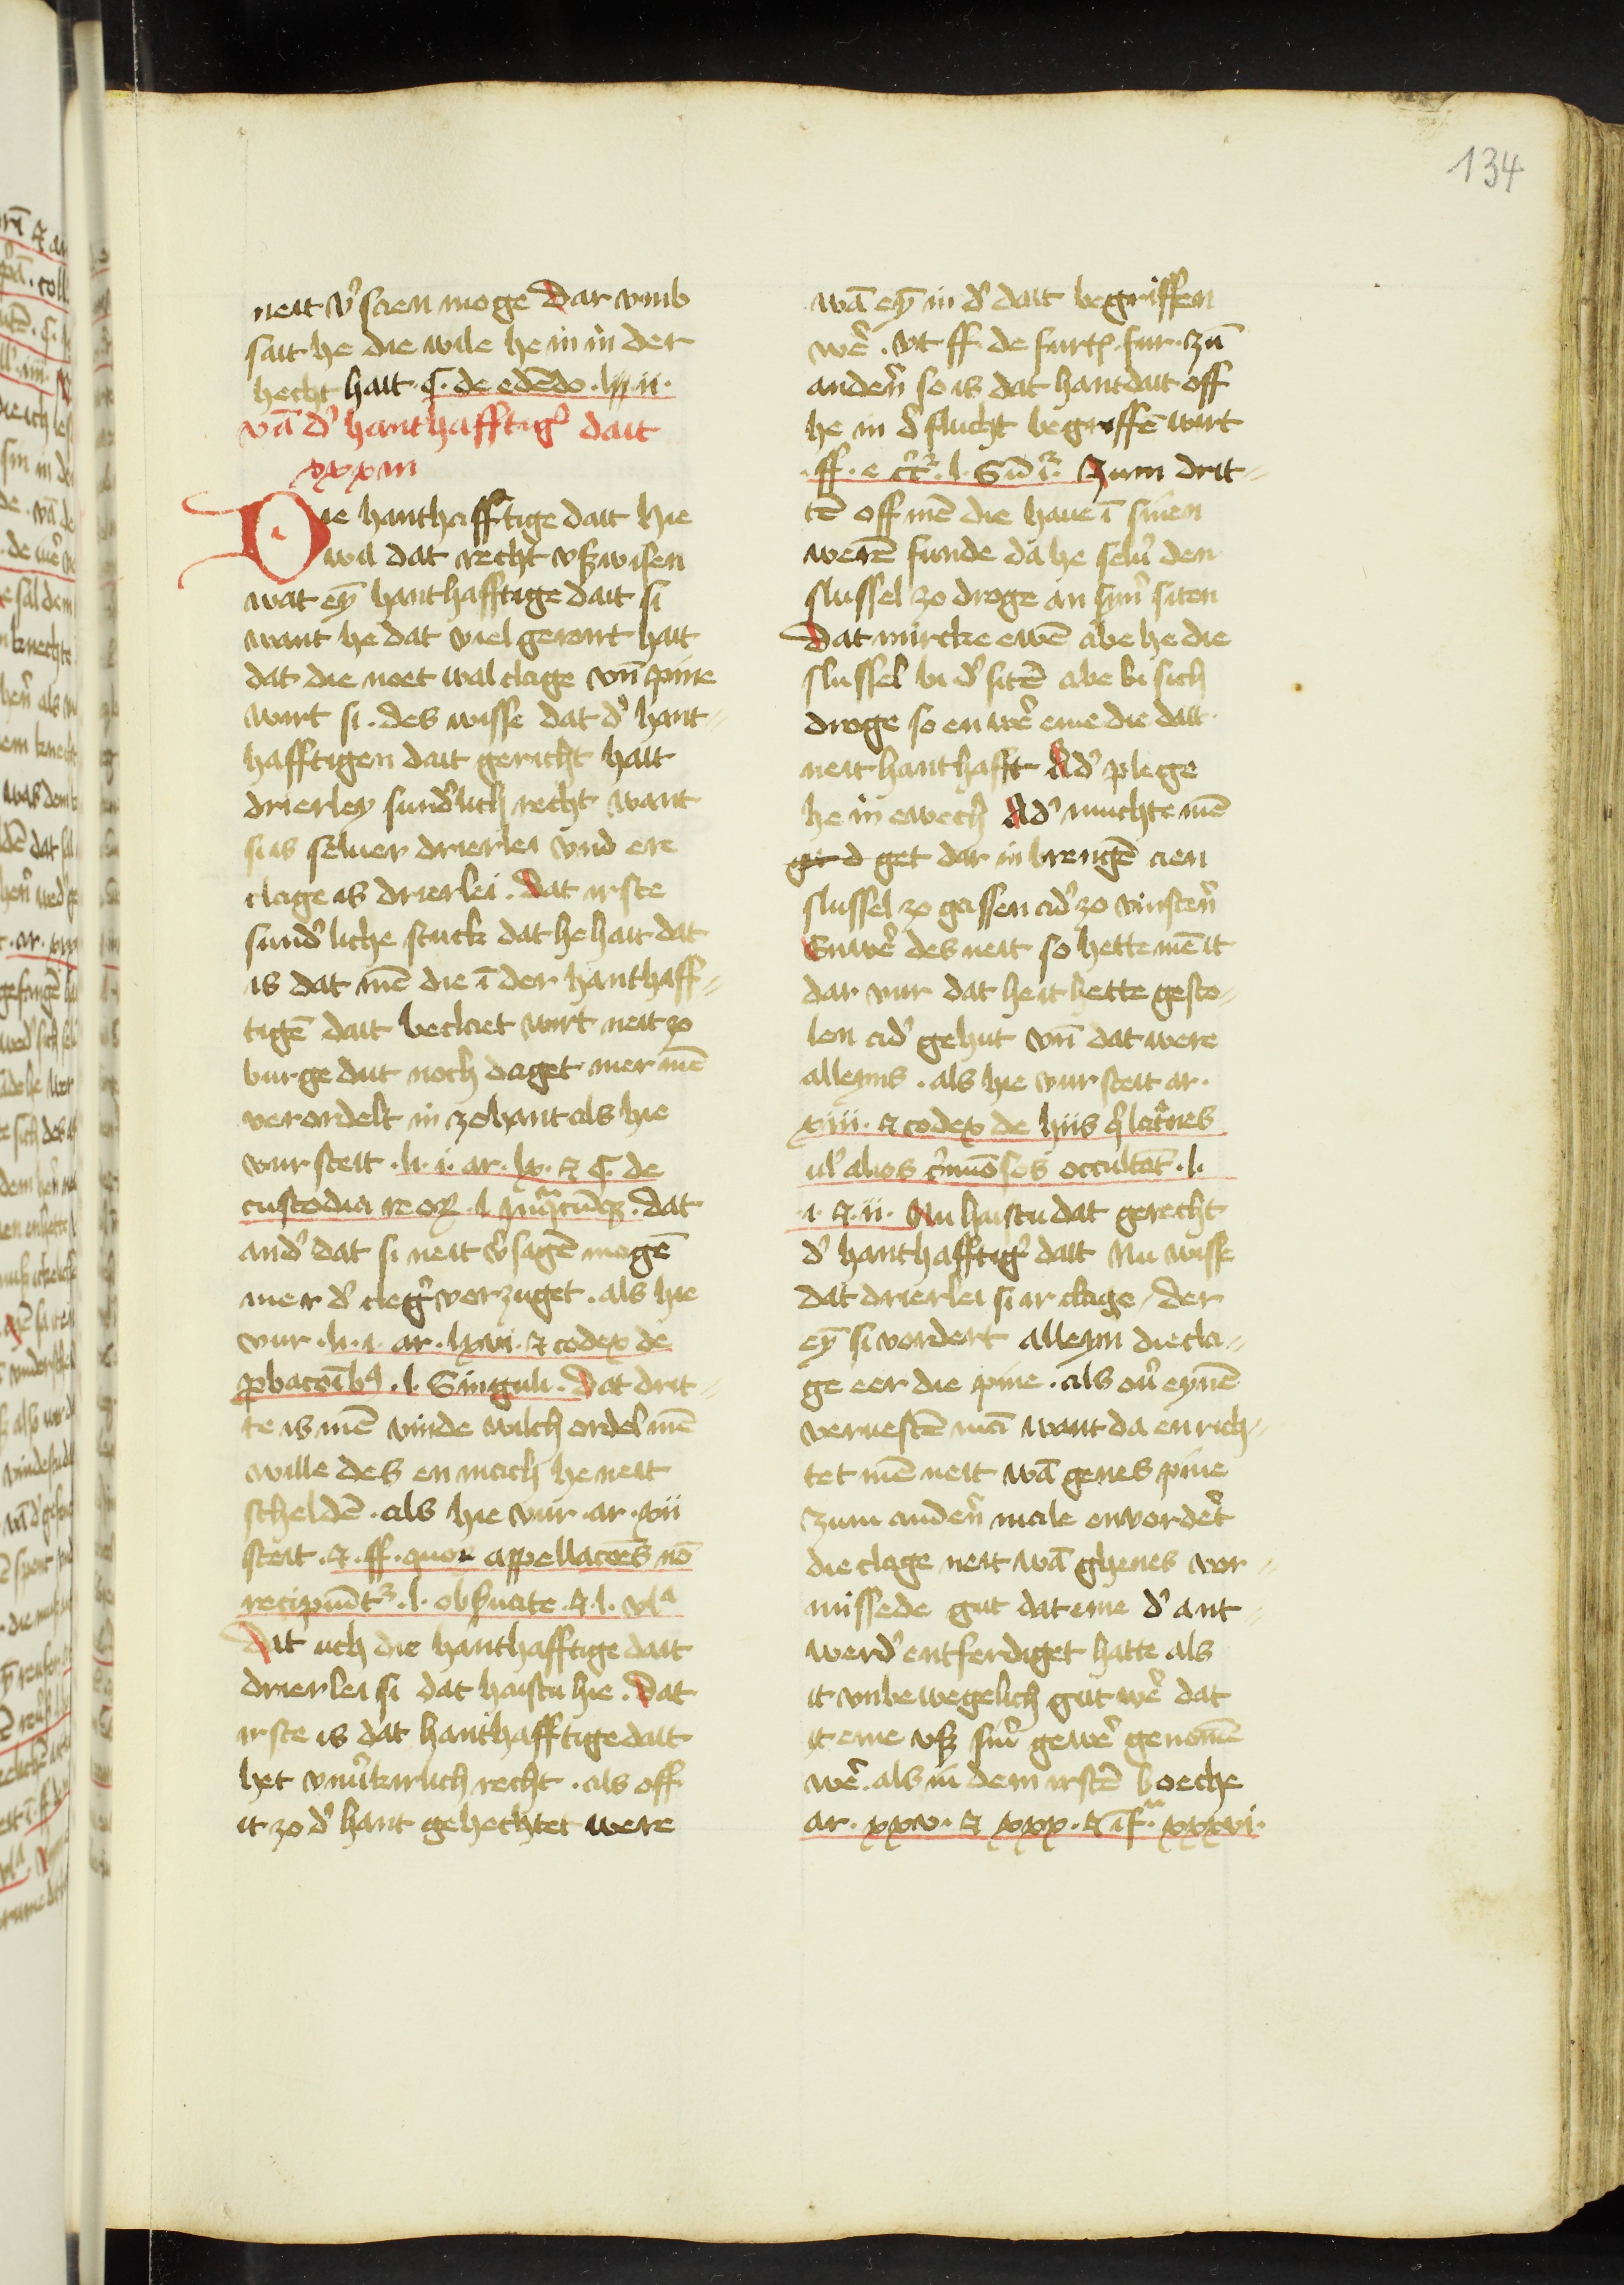 134
neit v̉saen moge Dar vmb
sait he die wile he in in der
hecht hait · C. de edēdo · l · ii ·
vā d̉ hanthafftig̉ dait
xxxvi
Die hanthafftige dait hie
wil dat recht vßwisen
wat eȳ hanthafftige dait si
want he dat viel gerort hait
dat die noet wal clage vn̄ pine
wirt si · des wisse dat d̉ hant⸗
hafftigen dait gericht hait
drierley sund̉lich recht want
si is seluer drierlei vnd ere
clage is drierlei · Dat irste
sund̉liche stuck dat he hait dat
is dat mē die ī der hanthaff⸗
tigē dait beclaet wirt neit zo
burge dut noch daget mer mē
verordelt in zohant als hie
vur steit · li · i · ar · lx · ⁊ C. de
custodia reoꝝ · l · · dat
and̉ dat si neit v̉sagē mogē
mer d̉ cleg̉ vorzuget · als hie
vur · li · i · ar · lxvi · ⁊ codex de
ꝓbacōībꝰ · l · Singuli · Dat drit⸗
te is mē vinde wilch ordel mē
wille des en mach he neit
scheldē · als hie vur · ar · xii
steit · ⁊ · ff · quoꝝ appellacōes nō
recipiunt̉ · l · obs̉uate · ⁊ · l · vlᵃ
Dat uch die hanthafftige dait
drierlei si dat haistu hie · Dat
irste is dat hanthafftige dait
het vnu̓kirlich recht · als off
it zo d̉ hant gehechtet were
wā eȳ in d̉ dait begriffen
wē̉ · Vt ff · de furt · fur · zū
anden̉ so is dat hantdait off
he in d̉ flucht begriffē wirt
· ff · e · l · · Zum drit⸗
tē off mē die haue ī sinen
werē funde da he selủ den
slussel zo droge an sin̉ siten
Dat mircke ewē abe he die
slussel bi d̉ sitē abe bi sich
droge so en wē̉ eme die dait
neit hanthafft Ad̉ plege
he in ewech Ad̉ muchte mē
get dar in brengē aen
slussel zo gassen ad̉ zo vinsten̉
Enwē̉ des neit so hette mē it
dar vur dat he it hette gesto⸗
len ad̉ gehut vn̄ dat were
alleyns · als hie vur steit ar ·
xiiii · ⁊ codex de hiis q̉ lat̉nes
ul̉ alios c̉minōsos occultāt · l ·
· i · ⁊ · ii · Nu haistu dat gerecht
d̉ hanthafftig̉ dait Nu wisse
dat drierlei si ir clage / der
eȳ si vordert alleyn die cla⸗
ge eer die pine · als ou̓ eynē
veruestē mā want da en rich⸗
tet mē neit wā genes pine
Zum anden̉ male envorde̓t
die clage neit wā ghenes vor⸗
missede gut dat eme d̉ ant⸗
werd̉ entferdiget hatte als
it vnbewegelich gut wē̉ dat
it eme vß sin̉ gewē̉ genomē
wē̉ · als in dem irstē boeche
ar · xxv · ⁊ xxx · ⁊ īfᵃ · xxxvi ·